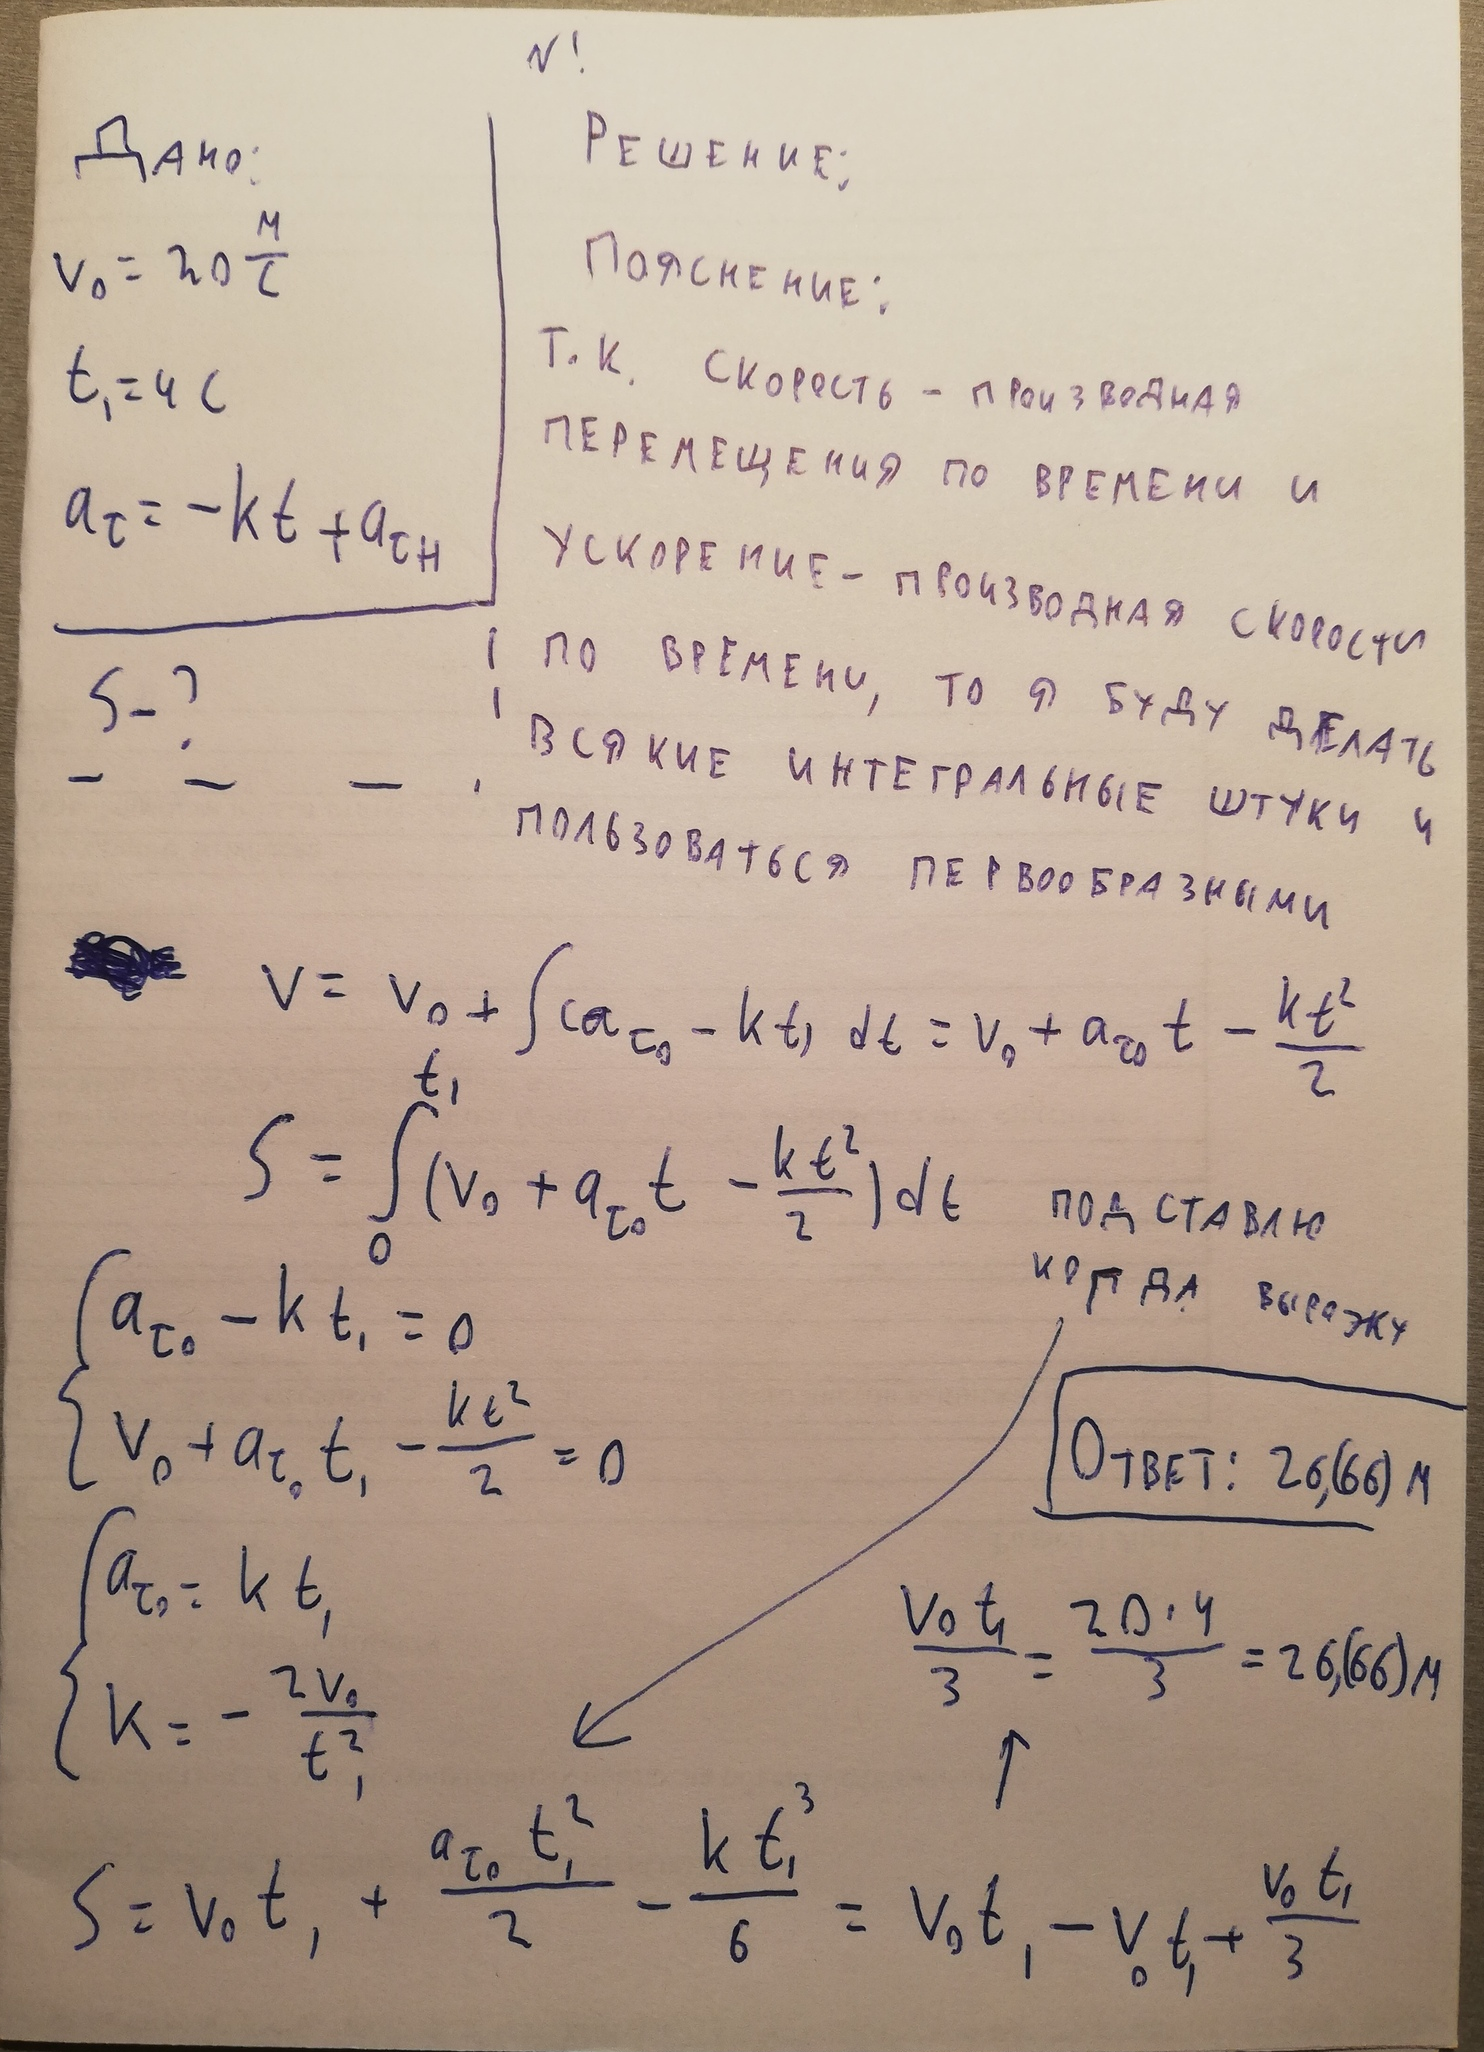 N!
Дано:
v₀ = 20 м/с
t₁ = 4 с
a_τ = -kt + a_τн
S - ?
Решение:
Пояснение:
Т.к. скорость - производная
перемещения по времени и
ускорение - производная скорости
по времени, то я буду делать
всякие интегральные штуки и
пользоваться первообразными
v = v₀ + ∫(a_τ₀ - kt) dt = v₀ + a_τ₀ t - kt²/2
S = ∫₀^t₁ (v₀ + a_τ₀ t - kt²/2) dt
подставлю
когда выражу
{ a_τ₀ - kt₁ = 0
{ v₀ + a_τ₀ t₁ - kt²/2 = 0
Ответ: 26,(66) м
{ a_τ₀ = k t₁
{ k = - 2v₀/t₁²
v₀t₁/3 = 20·4/3 = 26,(66) м
S = v₀t₁ + a_τ₀ t₁²/2 - kt₁³/6 = v₀t₁ - v₀t₁ + v₀t₁/3